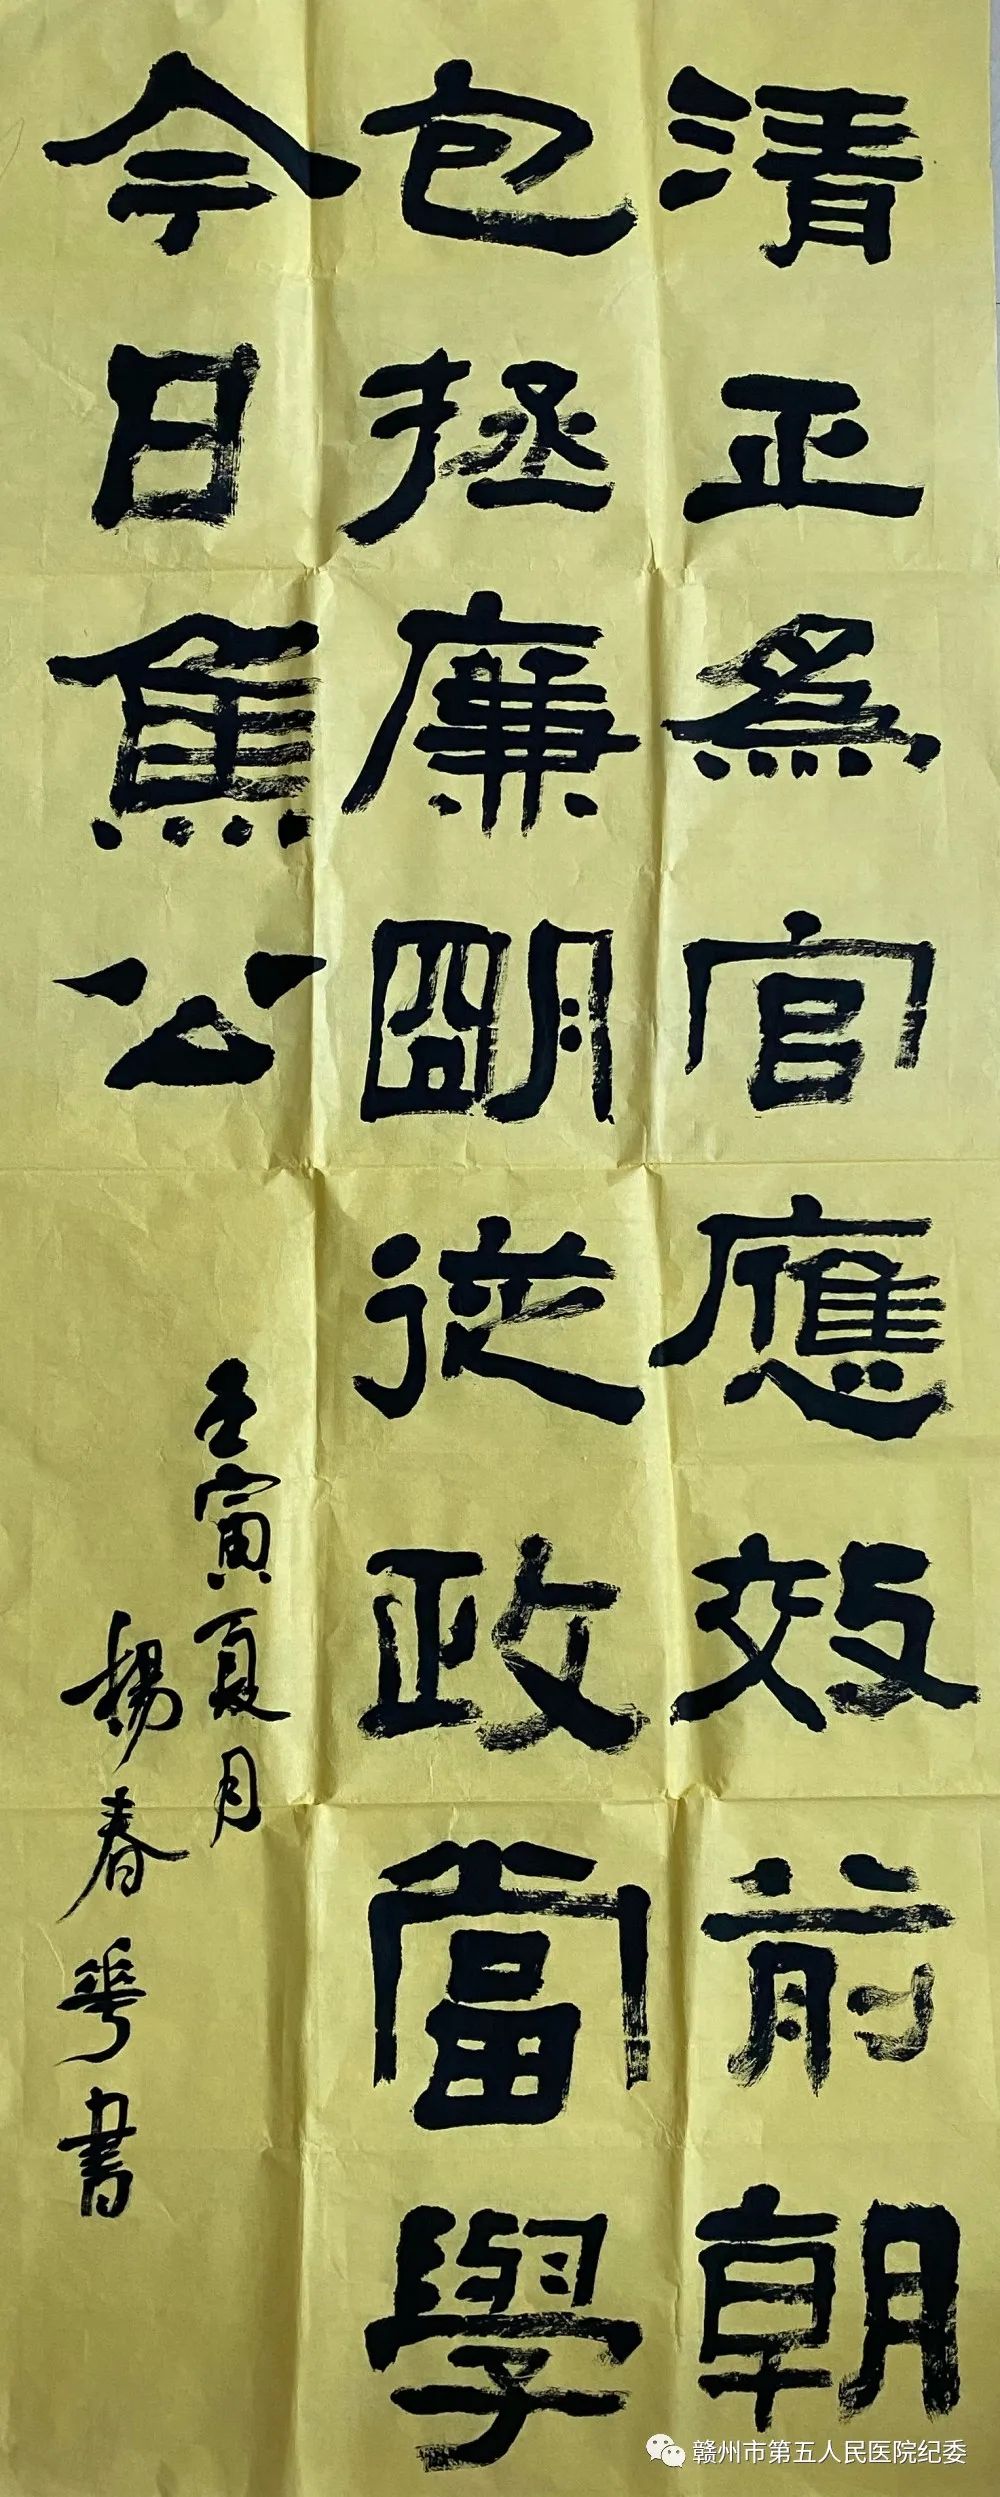 清正為官應效前朝
包拯廉明從政當學
今日焦公
壬寅夏月
楊春華書
赣州市第五人民医院纪委